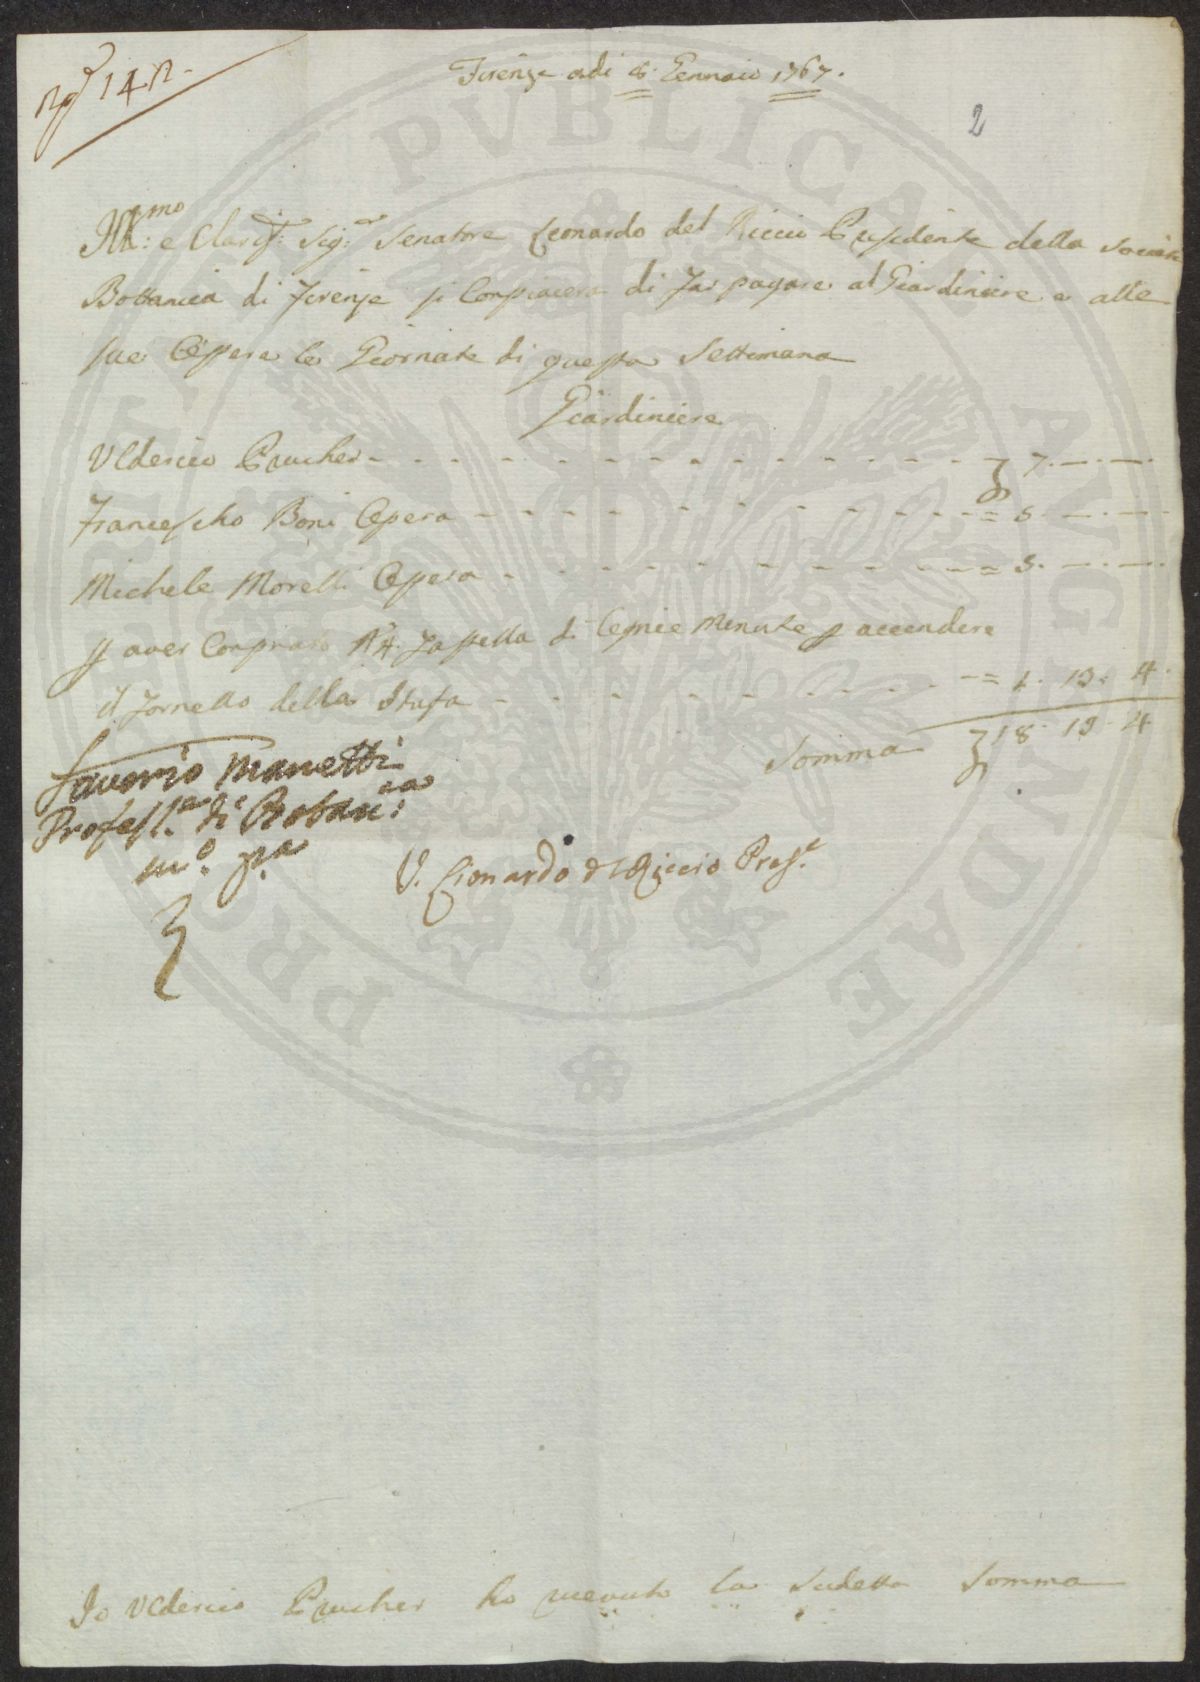 Nº 142.
Firenze adi 8. Gennaio 1767.
2
Ill:mo e Clariss: Sig:re Senatore Leonardo del Riccio Presidente della Società
Bottanica di Firenze si Conpiacera di Far pagare al Giardiniere e alle
sue Oppere le Giornate di questa Settimana
Giardiniere
Ulderico Prucher - - - 7. — . —
Francescho Boni Opera - - - = 5. — . —
Michele Morelli Oppera - - - = 5. — . —
p aver Conprato Nº 4. Fastella di Legnie Minute p accendere
il Fornello della Stufa - - - = 1. 13. 4.
Somma 18. 13. 4
Saverio Manetti
Profess.re di Botan:ca
mº. pa
V. Lionardo del Riccio Pres.te
Io Ulderico Prucher ho riceuuto la Sudetta Somma
PRO REI RVSTICAE PVBLICAE AVGENDAE